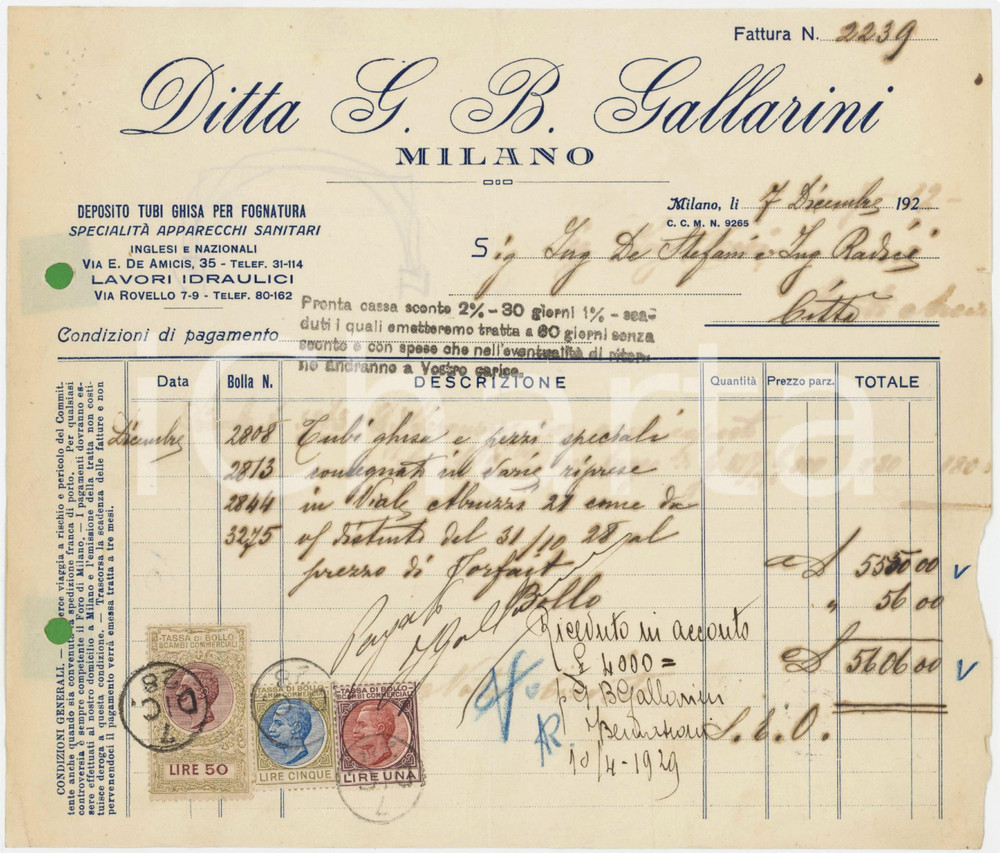 Fattura N. 2239
Ditta G. B. Gallarini
MILANO
Milano, li 7 Dicembre 192
C. C. M. N. 9265
DEPOSITO TUBI GHISA PER FOGNATURA
SPECIALITÀ APPARECCHI SANITARI
INGLESI E NAZIONALI
VIA E. DE AMICIS, 35 - TELEF. 31-114
LAVORI IDRAULICI
VIA ROVELLO 7-9 - TELEF. 80-162
Sig Ing De Stefani e Ing Radici
Città
Pronta cassa sconto 2% - 30 giorni 1% - sca-
duti i quali emetteremo tratta a 60 giorni senza
sconto e con spese che nell'eventualità di ritor-
no andranno a Vostro carico.
Condizioni di pagamento
Data Bolla N. DESCRIZIONE Quantità Prezzo parz. TOTALE
Dicembre 2808 Tubi ghisa e pezzi speciali
2813 consegnati in varie riprese
2844 in Viale Abruzzi 21 come da
3275 v/ distinta del 31/10 28 al
prezzo di Forfait £ 5550 00
Bollo " 56 00
£ 5606 00
S. E. O.
Pagato
Ricevuto in acconto
£ 4000 =
p G B Gallarini
10/4-1929
AR
TASSA DI BOLLO
SCAMBI COMMERCIALI
LIRE 50
TASSA DI BOLLO
SCAMBI COMMERCIALI
LIRE CINQUE
TASSA DI BOLLO
SCAMBI COMMERCIALI
LIRE UNA
7 DIC. 28
CONDIZIONI GENERALI. — erce viaggia a rischio e pericolo del Commit-
tente anche quando sia convenuta la spedizione franca di porto. Per qualsiasi
controversia è sempre competente il Foro di Milano. — I pagamenti dovranno es-
sere effettuati al nostro domicilio a Milano e l'emissione della tratta non costi-
tuisce deroga a questa condizione. — Trascorsa la scadenza delle fatture e non
pervenendoci il pagamento verrà emessa tratta a tre mesi.